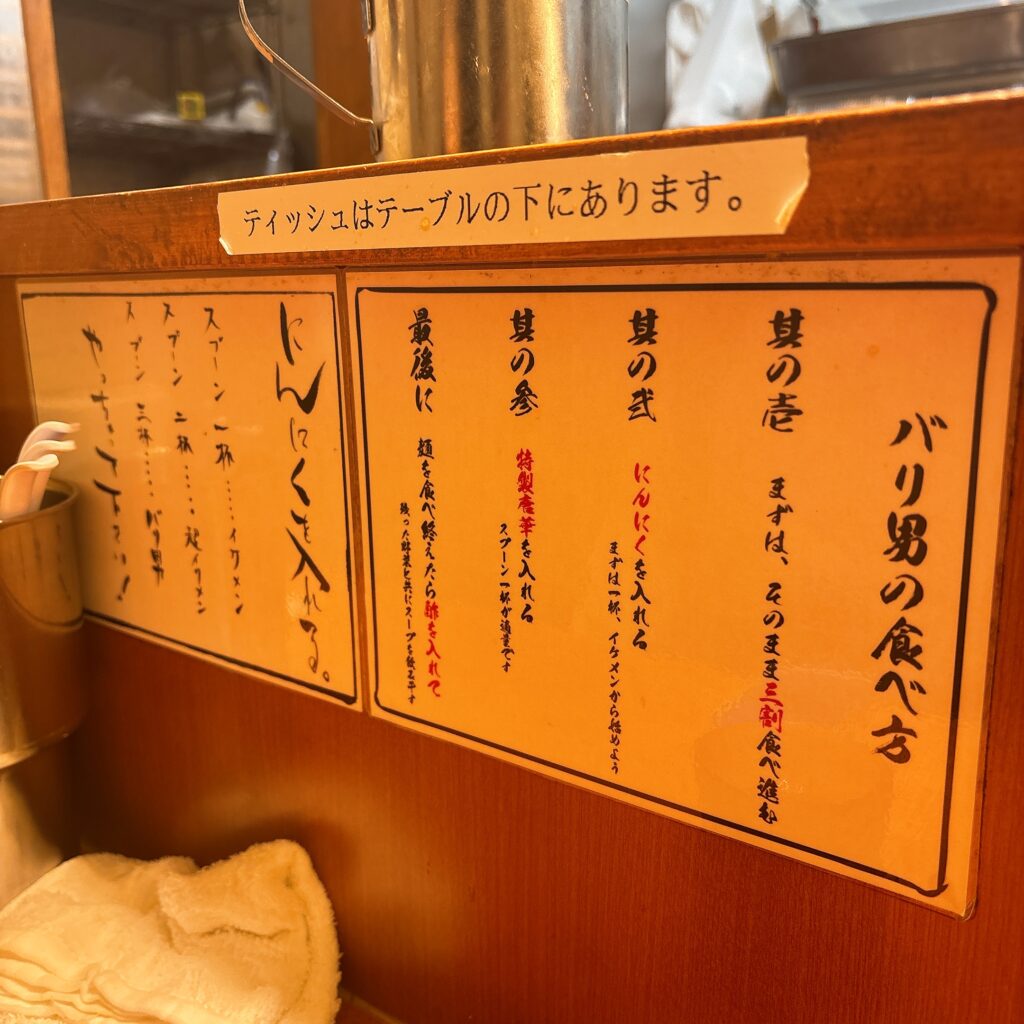 ティッシュはテーブルの下にあります。
バリ男の食べ方
其の壱 まずは、そのまま三割食べ進む
其の弐 にんにくを入れる
まずは一杯、イケメンから始めよう
其の参 特製唐華を入れる
スプーン一杯が適量です
最後に 麺を食べ終えたら酢を入れて
残った野菜と共にスープを飲み干す
にんにくを入れる。
スプーン一杯……イケメン
スプーン二杯……超イケメン
スプーン三杯……バリ男
やっちゃって下さい!